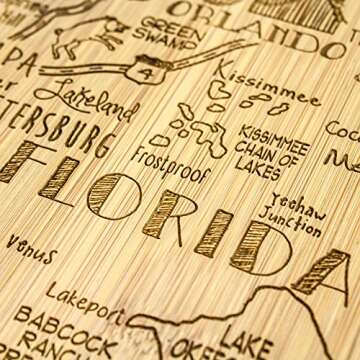 ORLANDO
GREEN
SWAMP
4
Kissimmee
Lakeland
KISSIMMEE
CHAIN OF
LAKES
Frostproof
FLORIDA
Yeehaw
Junction
Venus
Lakeport
BABCOCK
RANCH
LAKE